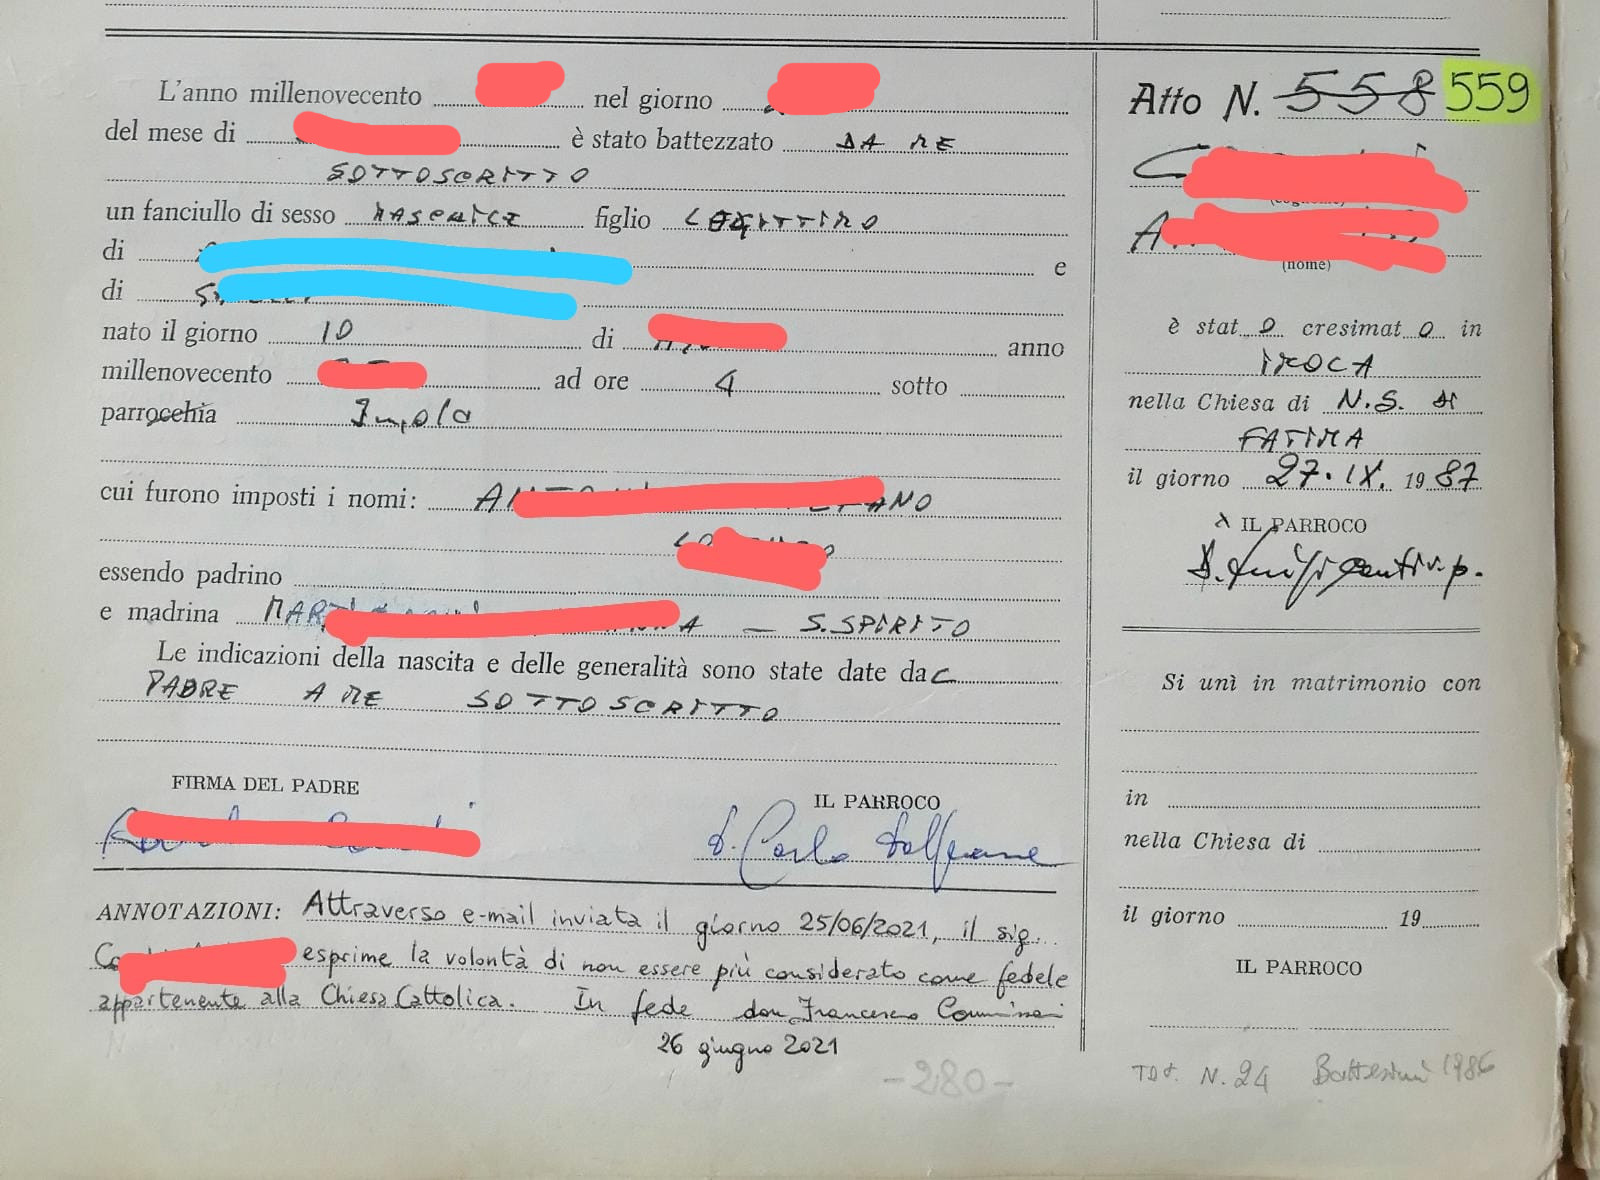 L'anno millenovecento nel giorno
del mese di è stato battezzato DA ME
SOTTOSCRITTO
un fanciullo di sesso MASCHILE figlio LEGITTIMO
di e
di
nato il giorno 10 di anno
millenovecento ad ore 4 sotto
parrocchia Imola
cui furono imposti i nomi:
essendo padrino
e madrina - S. SPIRITO
Le indicazioni della nascita e delle generalità sono state date daL
PADRE A ME SOTTOSCRITTO
FIRMA DEL PADRE
IL PARROCO
d. Carlo
ANNOTAZIONI: Attraverso e-mail inviata il giorno 25/06/2021, il sig.
esprime la volontà di non essere più considerato come fedele
appartenente alla Chiesa Cattolica. In fede don Francesco
26 giugno 2021
-280-
Atto N. 558 559
(cognome)
(nome)
è stat o cresimat o in
IMOLA
nella Chiesa di N.S. di
FATIMA
il giorno 27.IX. 1987
IL PARROCO
Si unì in matrimonio con
in
nella Chiesa di
il giorno 19
IL PARROCO
TOT. N. 24 Battesimi 1986